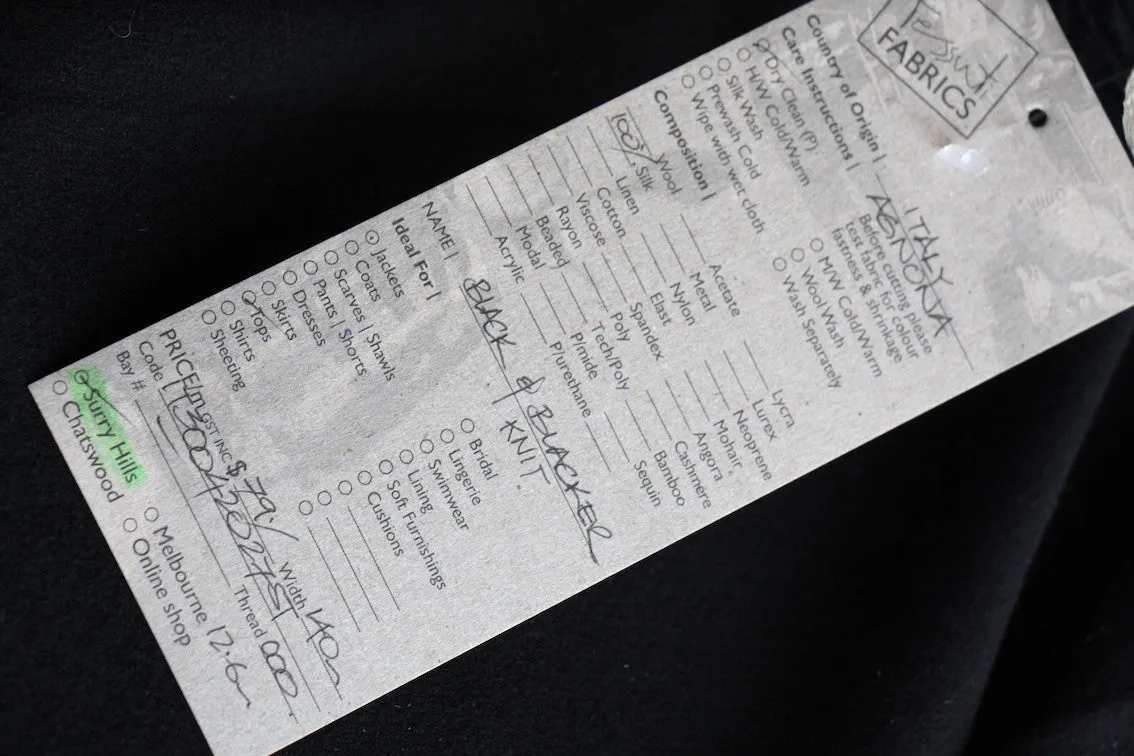 Tessuti
FABRICS
Country of Origin | ITALY
Care Instructions | AGNONA
Dry Clean (P)
H/W Cold/Warm
Silk Wash Cold
Prewash Cold
Wipe with wet cloth
Before cutting please
test fabric for colour
fastness & shrinkage
M/W Cold/Warm
Wool Wash
Wash Separately
Composition |
100% Wool
Silk
Linen
Cotton
Viscose
Rayon
Beaded
Modal
Acrylic
Acetate
Metal
Nylon
Elast
Spandex
Poly
Tech/Poly
P/mide
P/urethane
Lycra
Lurex
Neoprene
Mohair
Angora
Cashmere
Bamboo
Sequin
NAME | BLACK & BLACKER
KNIT.
Ideal For |
Jackets
Coats
Scarves | Shawls
Pants | Shorts
Dresses
Skirts
Tops
Shirts
Sheeting
Bridal
Lingerie
Swimwear
Lining
Soft Furnishings
Cushions
PRICE/m GST INC $ 79./ Width 140
Code
Bay # Thread 000
Surry Hills
Chatswood
Melbourne 12.6
Online shop